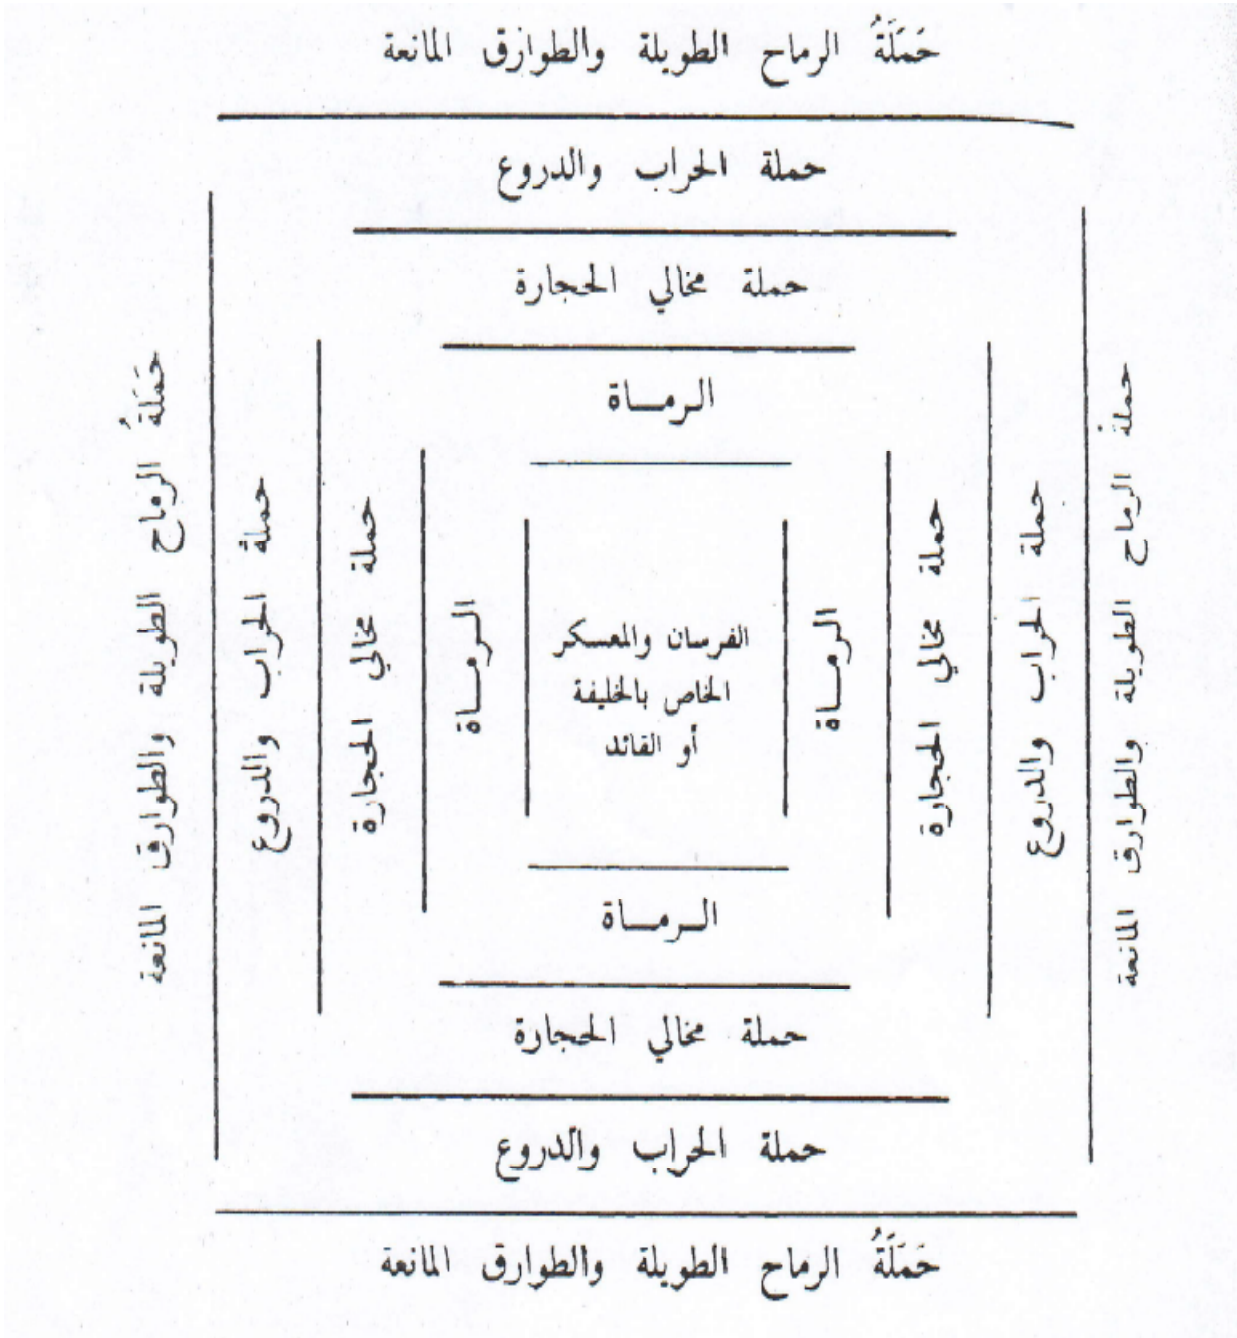 حَمَلَةُ الرماح الطويلة والطوارق المانعة
حملة الحراب والدروع
حملة مخالي الحجارة
الرمـاة
حملة الرماح الطويلة والطوارق المانعة
حملة الحراب والدروع
حملة مخالي الحجارة
الرمـاة
الفرسان والمعسكر
الخاص بالخليفة
أو القائد
الرمـاة
حملة مخالي الحجارة
حملة الحراب والدروع
حَمَلَةُ الرماح الطويلة والطوارق المانعة
الرمـاة
حملة مخالي الحجارة
حملة الحراب والدروع
حَمَلَةُ الرماح الطويلة والطوارق المانعة